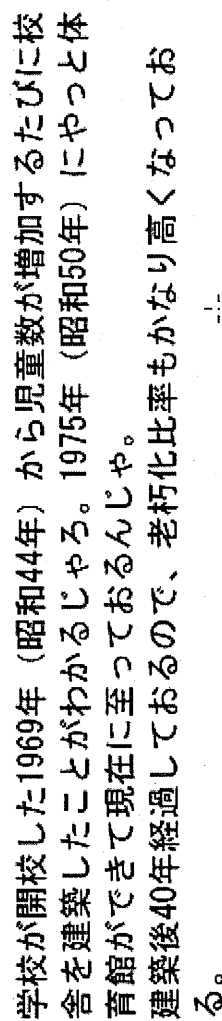 学校が開校した1969年（昭和44年）から児童数が増加するたびに校
舎を建築したことがわかるじゃろ。1975年（昭和50年）にやっと体
育館ができて現在に至っておるんじゃ。
建築後40年経過しておるので、老朽化比率もかなり高くなってお
る。